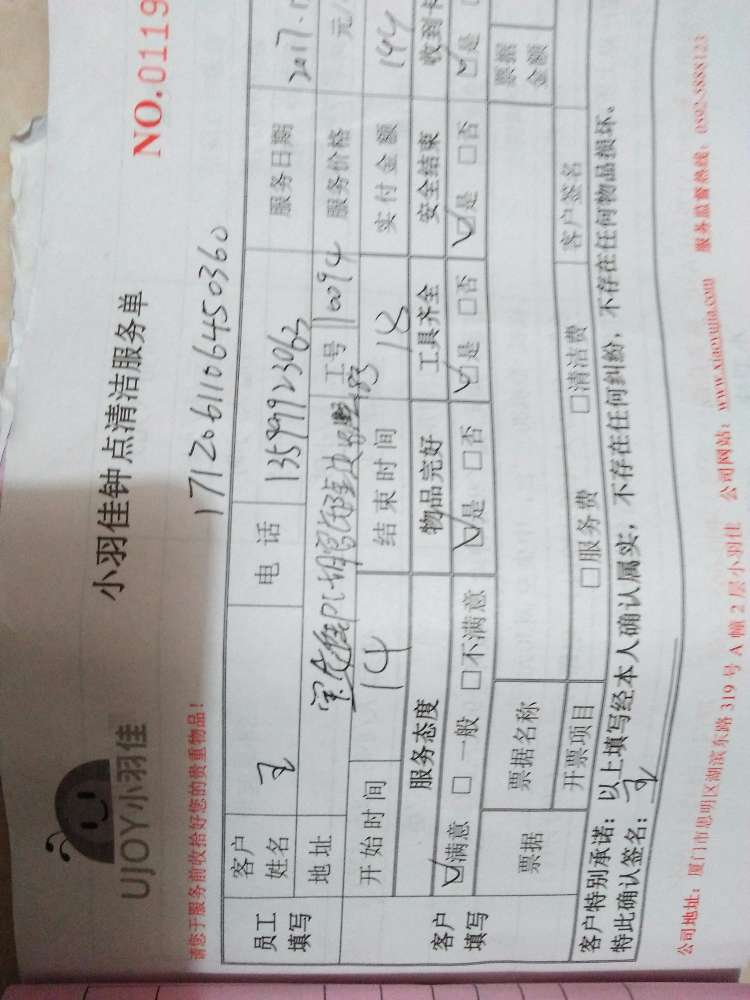 UJOY小羽佳
小羽佳钟点清洁服务单
NO.0119
请您于服务前收拾好您的贵重物品！
1712061106450360
员工填写
客户姓名 王 电话 13599923063 服务日期 2017.
地址 工号 10094 服务价格 元/
开始时间 14 结束时间 18 实付金额 144
客户填写
服务态度 物品完好 工具齐全 安全结束 收到
☑满意 □一般 □不满意 ☑是 □否 ☑是 □否 ☑是 □否 ☑是
票据 票据名称 票据金额
开票项目 □服务费 □清洁费 客户签名
客户特别承诺：以上填写经本人确认属实，不存在任何纠纷，不存在任何物品损坏。
特此确认签名：王
公司地址：厦门市思明区湖滨东路319号A幢2层小羽佳 公司网站：www.xiaoyujia.com 服务监督热线：0592-5888123